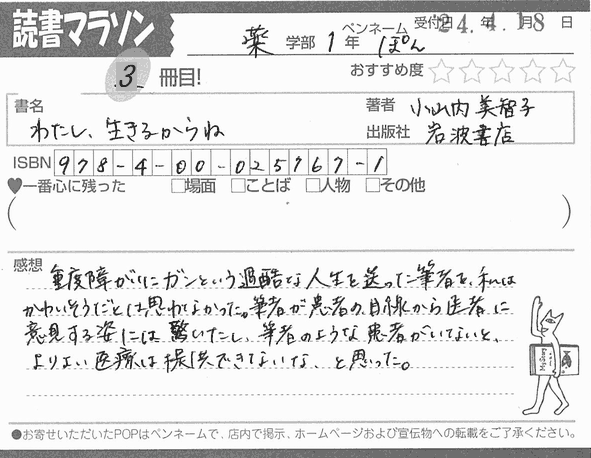 読書マラソン
薬 学部 1 年 ペンネーム ぽん 受付日 24年 4月18日
3 冊目!
おすすめ度 ☆☆☆☆☆
書名 わたし、生きるからね
著者 小山内美智子
出版社 岩波書店
ISBN 978-4-00-025767-1
♥一番心に残った □場面 □ことば □人物 □その他
( )
感想
重度障がいにガンという過酷な人生を送った筆者を、私は
かわいそうだとは思わなかった。筆者が患者の目線から医者に
意見する姿には驚いたし、筆者のような患者がいないと、
よりよい医療は提供できないな、と思った。
Mystery
●お寄せいただいたPOPはペンネームで、店内で掲示、ホームページおよび宣伝物への転載をご了承ください。